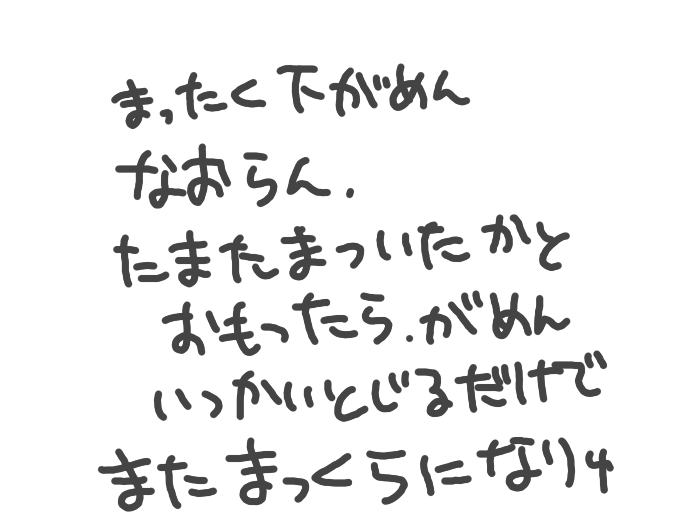 まったく下がめん
なおらん.
たまたまついたかと
おもったら.がめん
いっかいとじるだけで
またまっくらになり